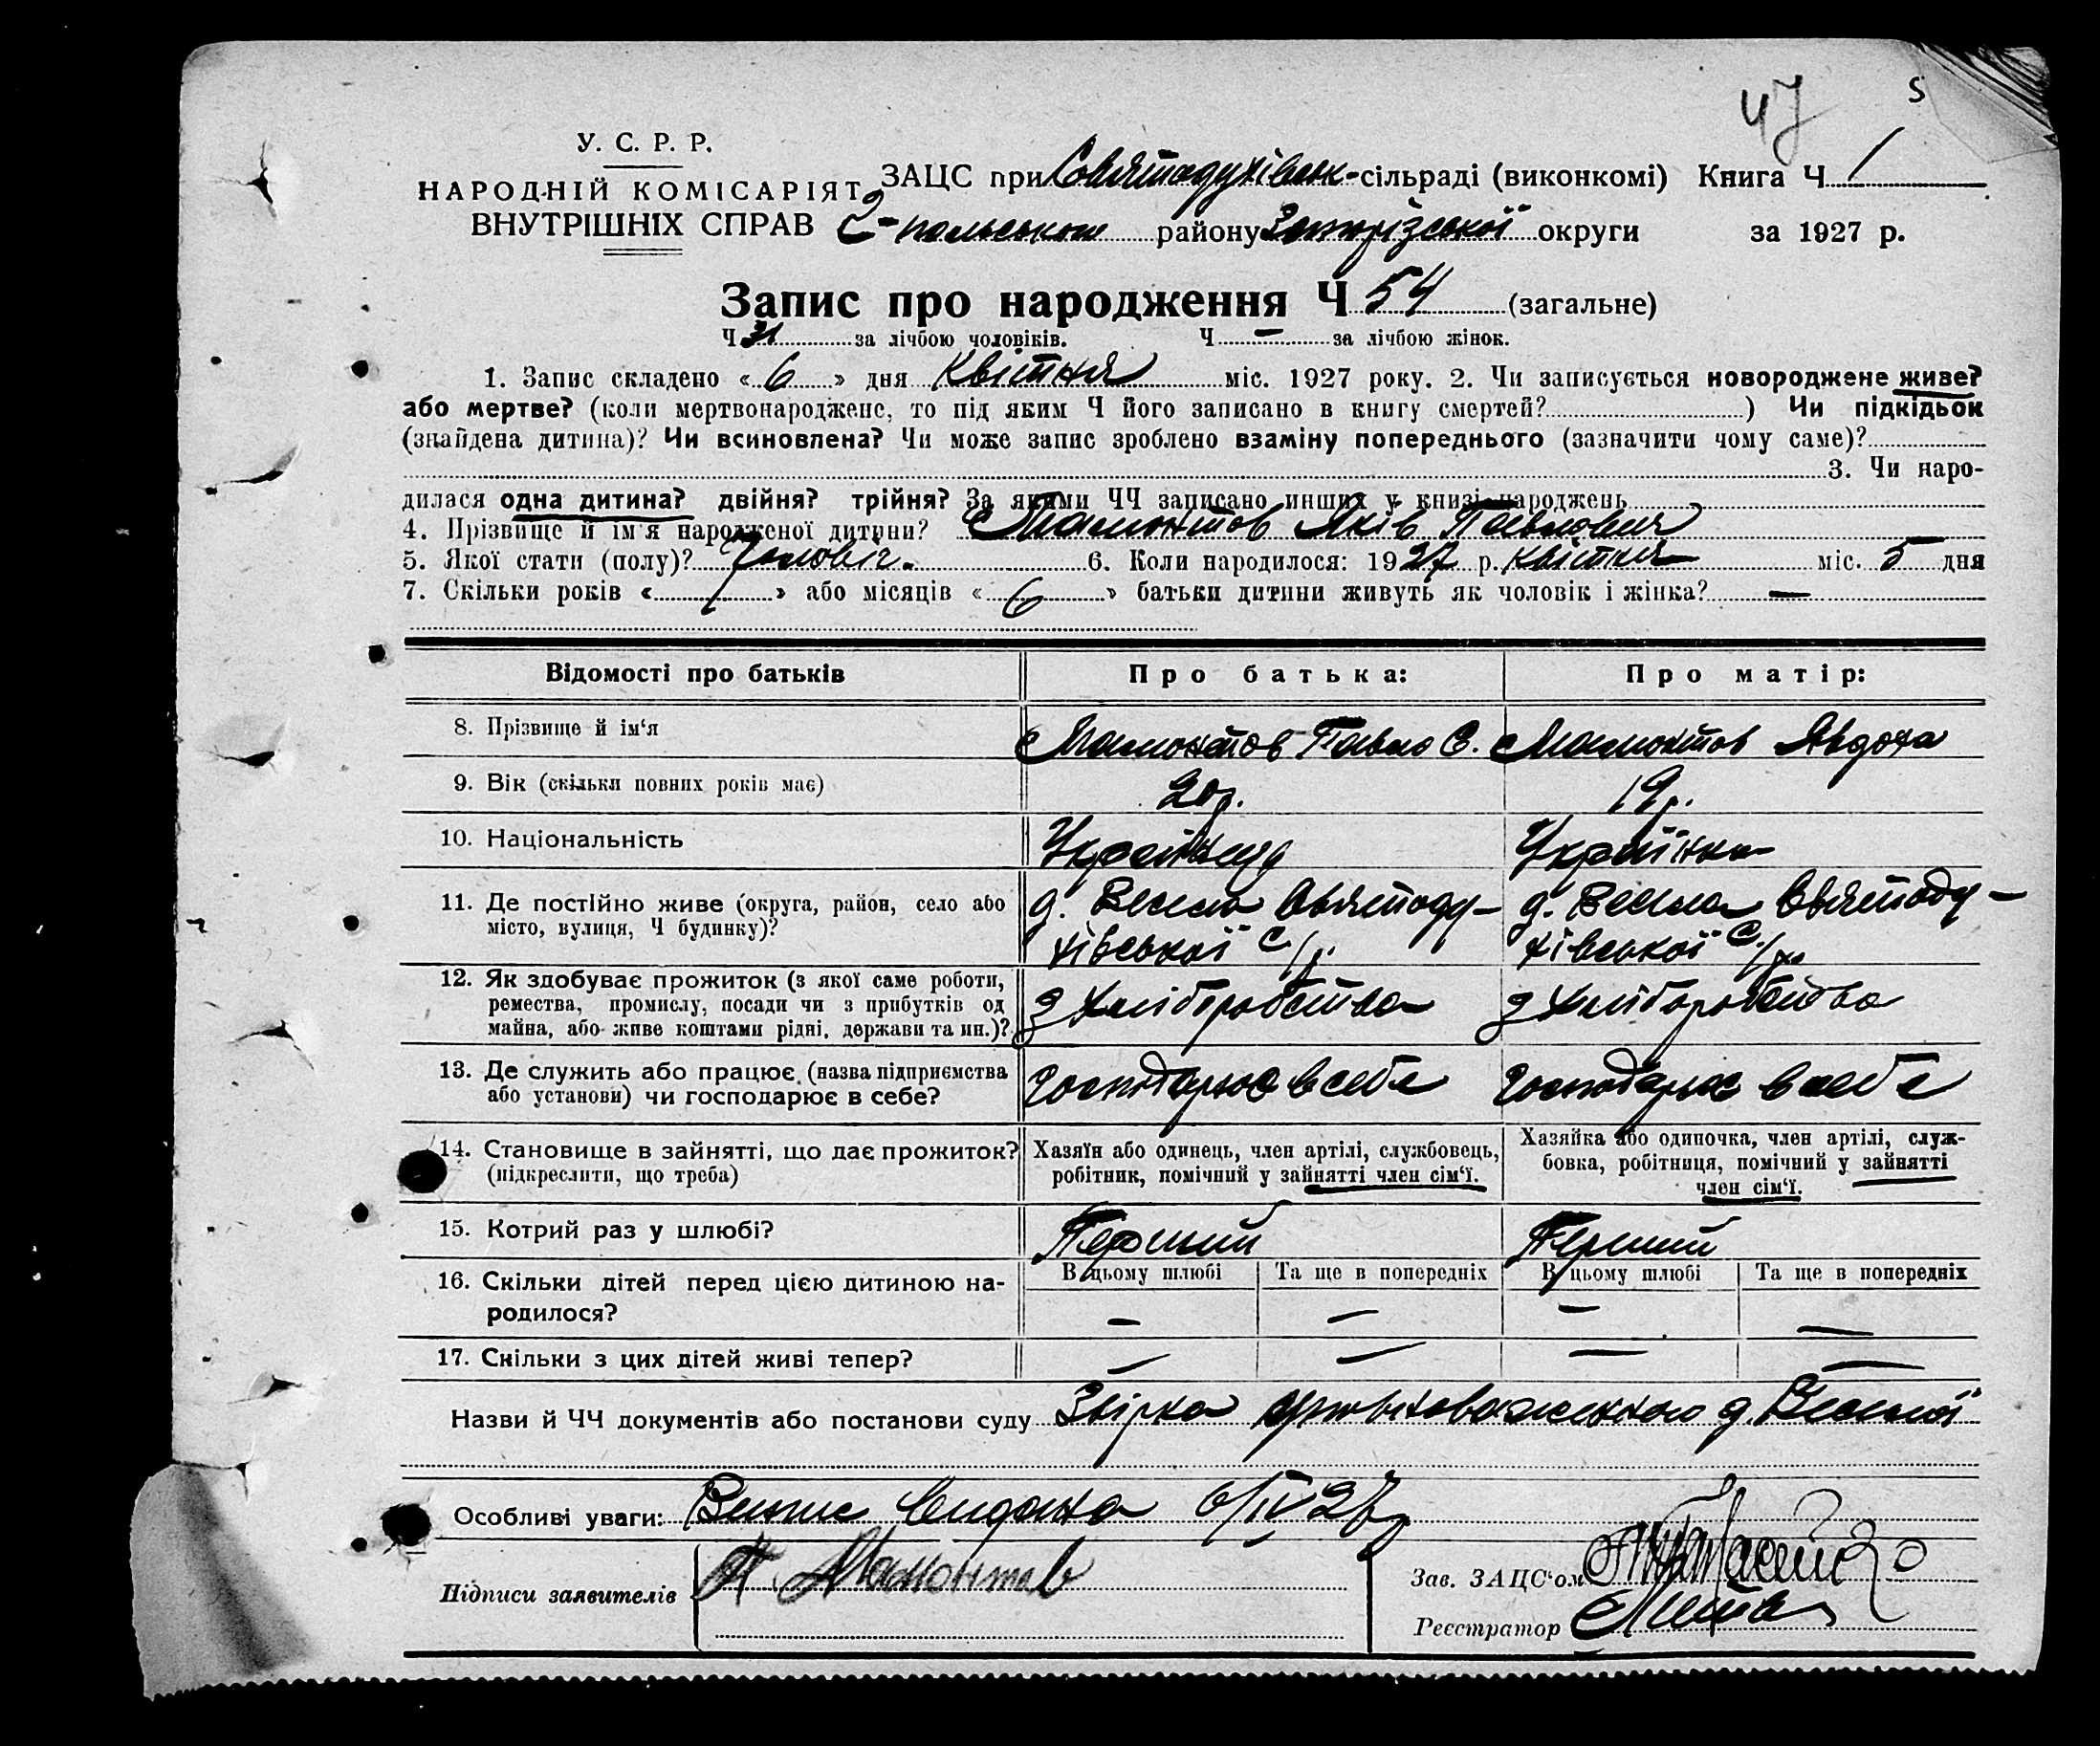 47 S
У. С. Р. Р.
НАРОДНІЙ КОМІСАРІЯТ
ВНУТРІШНІХ СПРАВ
ЗАЦС при Совятодухівськ-сільраді (виконкомі) Книга Ч 1
С-польського району Запорізської округи за 1927 р.
Запис про народження Ч 54 (загальне)
Ч 31 за лічбою чоловіків. Ч — за лічбою жінок.
1. Запис складено « 6 » дня Квітня міс. 1927 року. 2. Чи записується новороджене живе?
або мертве? (коли мертвонароджене, то під яким Ч його записано в книгу смертей? ) Чи підкідьок
(знайдена дитина)? Чи всиновлена? Чи може запис зроблено взаміну попереднього (зазначити чому саме)?
3. Чи наро-
дилася одна дитина? двійня? трійня? За якими ЧЧ записано инших у книзі народжень
4. Прізвище й ім'я народженої дитини? Мамонтов Яків Павлович
5. Якої стати (полу)? Чоловіч. 6. Коли народилося: 1927 р. квітня міс. 5 дня
7. Скільки років « / » або місяців « 6 » батьки дитини живуть як чоловік і жінка? —
Відомості про батьків Про батька: Про матір:
8. Прізвище й ім'я Мамонтов Павло С. Мамонтов Явдоха
9. Вік (скільки повних років має) 20 р. 19 р.
10. Національність Українець Українка
11. Де постійно живе (округа, район, село або місто, вулиця, Ч будинку)? д. Весела Святоду-хівської с/р. д. Весела Святоду-хівської с/р.
12. Як здобуває прожиток (з якої саме роботи, ремества, промислу, посади чи з прибутків од майна, або живе коштами рідні, держави та ин.)? З хліборобства З хліборобства
13. Де служить або працює (назва підприємства або установи) чи господарює в себе? Господарює в себе Господарює в себе
14. Становище в зайнятті, що дає прожиток? (підкреслити, що треба) Хазяїн або одинець, член артілі, службовець, робітник, помічний у зайнятті член сім'ї. Хазяйка або одиночка, член артілі, служ-бовка, робітниця, помічний у зайнятті член сім'ї.
15. Котрий раз у шлюбі? Перший Перший
В цьому шлюбі Та ще в попередніх В цьому шлюбі Та ще в попередніх
16. Скільки дітей перед цією дитиною на-родилося? — — — —
17. Скільки з цих дітей живі тепер? — — — —
Назви й ЧЧ документів або постанови суду д. Веселої
Особливі уваги: Випис видана 6/IV 27 р
Підписи заявителів П. Мамонтов
Зав. ЗАЦС'ом
Реєстратор